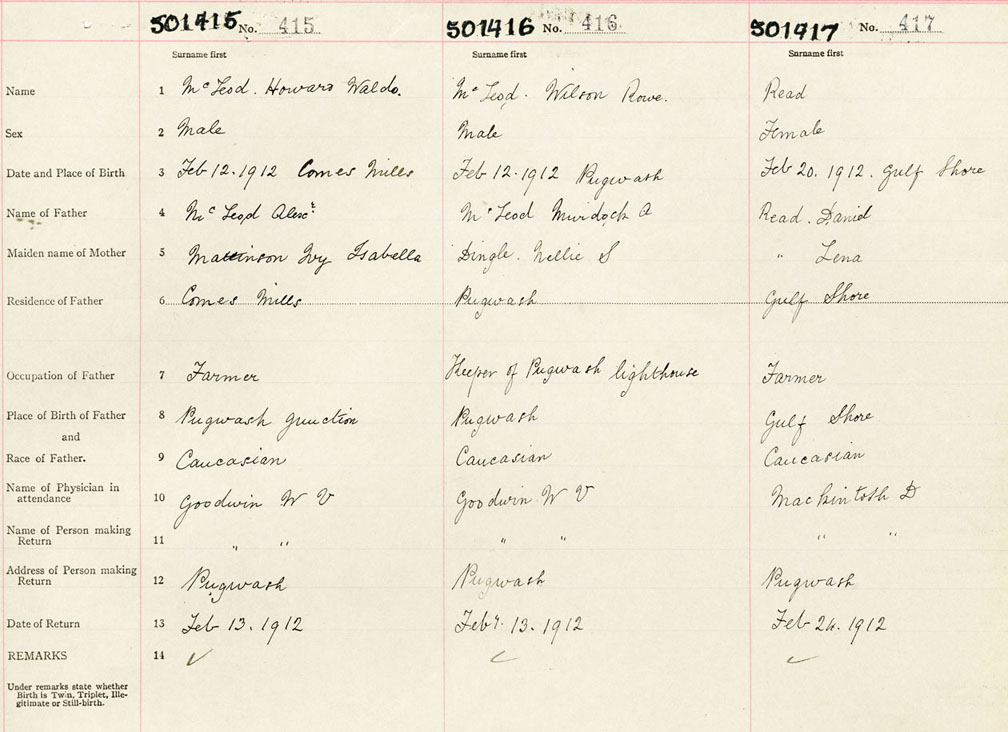 501415 No. 415 501416 No. 416 501417 No. 417
Surname first Surname first Surname first
Name 1 McLeod. Howard Waldo. McLeod. Wilson Rowe. Read
Sex 2 Male Male Female
Date and Place of Birth 3 Feb 12.1912 Comes Mills Feb 12.1912 Pugwash Feb 20. 1912. Gulf Shore
Name of Father 4 McLeod Alexr McLeod Murdock A Read. Daniel
Maiden name of Mother 5 Mattinson Ivy Isabella Dingle. Nellie S " Lena
Residence of Father 6 Comes Mills Pugwash Gulf Shore
Occupation of Father 7 Farmer Keeper of Pugwash lighthouse Farmer
Place of Birth of Father 8 Pugwash Junction Pugwash Gulf Shore
and
Race of Father. 9 Caucasian Caucasian Caucasian
Name of Physician in
attendance 10 Goodwin W V Goodwin W V MacKintosh D
Name of Person making
Return 11 " " " " " "
Address of Person making
Return 12 Pugwash Pugwash Pugwash
Date of Return 13 Feb 13. 1912 Feby. 13. 1912 Feb 24. 1912
REMARKS 14
Under remarks state whether
Birth is Twin, Triplet, Ille-
gitimate or Still-birth.